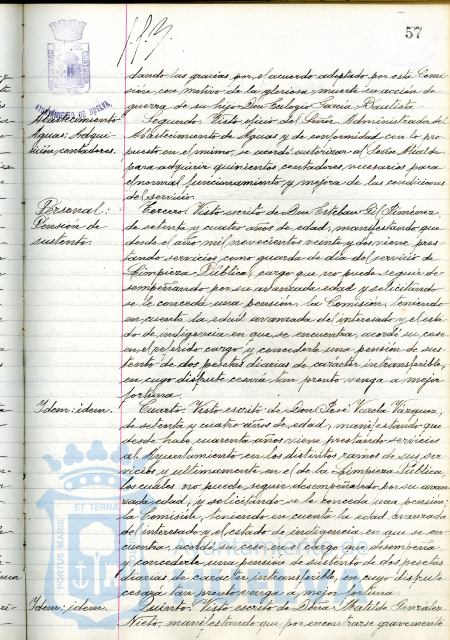 57
AYUNTAMIENTO DE HUELVA
dando las gracias por el acuerdo adoptado por esta Comi-
sión con motivo de la gloriosa muerte en acción de
guerra de su hijo Don Eulogio García Bautista
Abastecimiento
Aguas: Adqui-
sición contadores.
Segundo. Visto oficio del Señor Administrador del
Abastecimiento de Aguas y de conformidad con lo pro-
puesto en el mismo, se acordó autorizar al Señor Alcalde
para adquirir quinientos contadores, necesarios para
el normal funcionamiento y mejora de las condiciones
del servicio.
Personal:
Pensión de
sustento.
Tercero. Visto escrito de Don Esteban Gil Jiménez,
de setenta y cuatro años de edad, manifestando que
desde el año mil novecientos veinte y dos viene pres-
tando servicios como guarda de día del servicio de
Limpieza Pública, cargo que no puede seguir de-
sempeñando por su avanzada edad y solicitando
se le conceda una pensión, la Comisión, teniendo
en cuenta la edad avanzada del interesado y el esta-
do de indigencia en que se encuentra, acordó su cese
en el referido cargo y concederle una pensión de sus-
tento de dos pesetas diarias de carácter intransferible,
en cuyo disfrute cesará tan pronto venga a mejor
fortuna.
Idem: idem.
Cuarto. Visto escrito de Don José Varela Vázquez,
de setenta y cuatro años de edad, manifestando que
desde hace cuarenta años viene prestando servicios
al Ayuntamiento en los distintos ramos de sus ser-
vicios y ultimamente en el de la Limpieza Pública,
los cuales no puede seguir desempeñando por su avan-
zada edad, y solicitando se le conceda una pensión,
la Comisión, teniendo en cuenta la edad avanzada
del interesado y el estado de indigencia en que se en-
cuentra, acordó su cese en el cargo que desempeña
y concederle una pensión de sustento de dos pesetas
diarias de carácter intransferible, en cuyo disfrute
cesará tan pronto venga a mejor fortuna.
Idem: idem.
Quinto. Visto escrito de Doña Matilde González
Nieto, manifestando que por encontrarse gravemente
PORTUS MARIS ET TERRAE